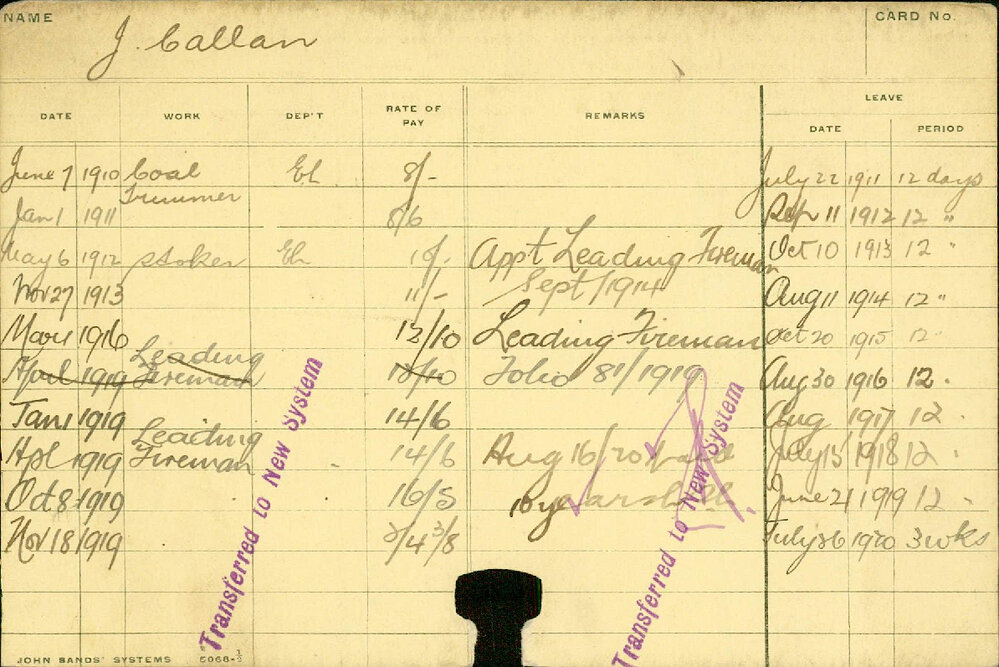 NAME J. Callan CARD No.
LEAVE
DATE WORK DEP'T RATE OF PAY REMARKS DATE PERIOD
June 7 1910 Coal Trimmer EL 8/- July 22 1911 12 days
Jan 1 1911 8/6 Sep 11 1912 12 "
May 6 1912 Stoker EL 10/- Appt Leading Fireman Oct 10 1913 12 "
Nov 27 1913 11/- Sept/1914 Aug 11 1914 12 "
Mar 1 1916 12/10 Leading Fireman Oct 20 1915 12 "
April 1919 Leading Fireman 12/10 Folio 81/1919 Aug 30 1916 12 .
Jan 1 1919 14/6 Aug 1917 12 .
Apl 1919 Leading Fireman 14/6 Aug 16/20 July 15 1918 12 .
Oct 8 1919 16/5 10 years June 21 1919 12 .
Nov 18 1919 July 26 1920 3 wks
Transferred to New System
Transferred to New System
JOHN SANDS' SYSTEMS 5068-½